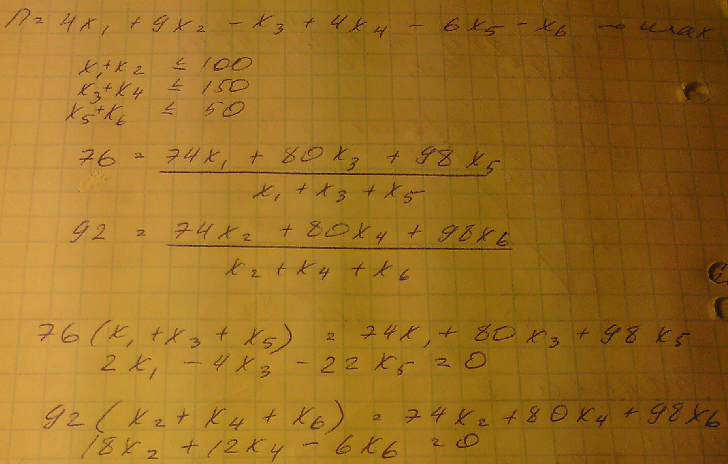 П = 4x₁ + 9x₂ - x₃ + 4x₄ - 6x₅ - x₆ → max
x₁+x₂ ≤ 100
x₃+x₄ ≤ 150
x₅+x₆ ≤ 50
76 = (74x₁ + 80x₃ + 98x₅) / (x₁ + x₃ + x₅)
92 = (74x₂ + 80x₄ + 98x₆) / (x₂ + x₄ + x₆)
76(x₁ + x₃ + x₅) = 74x₁ + 80x₃ + 98x₅
2x₁ - 4x₃ - 22x₅ = 0
92(x₂ + x₄ + x₆) = 74x₂ + 80x₄ + 98x₆
18x₂ + 12x₄ - 6x₆ = 0